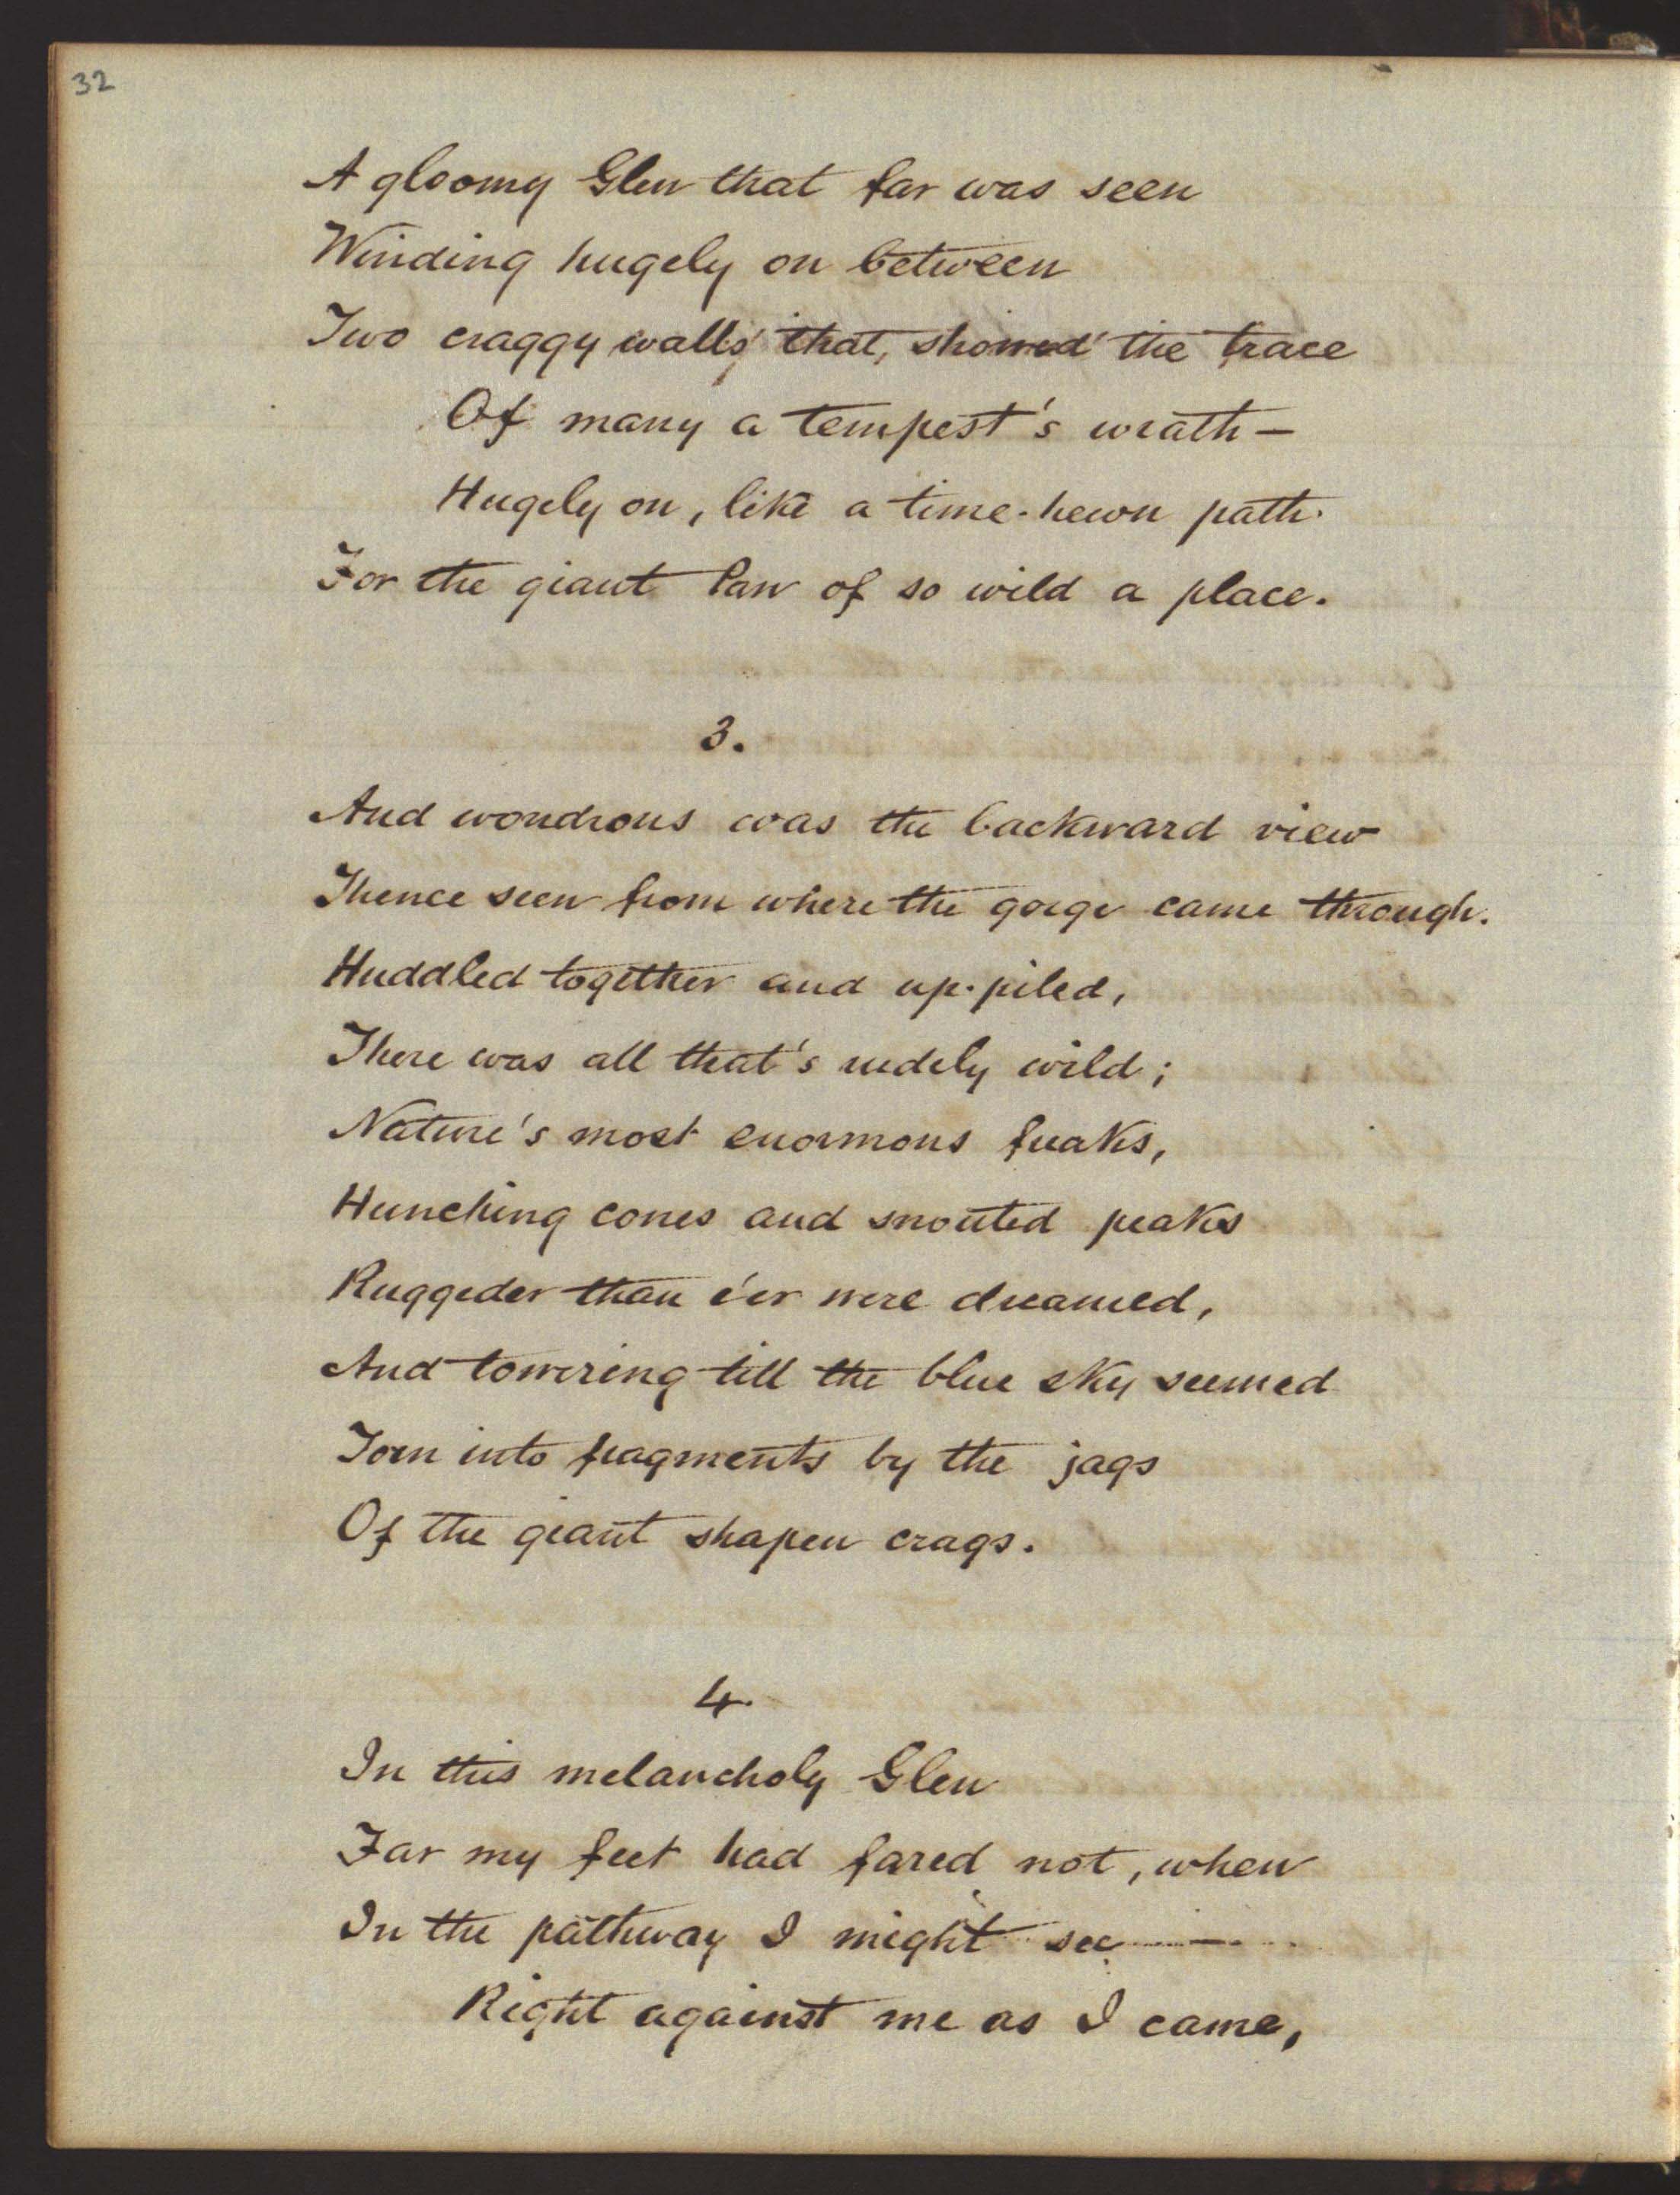 32
A gloomy Glen that far was seen
Winding hugely on between
Two craggy walls, that, showed the trace
Of many a tempest's wrath —
Hugely on, like a time-hewn path
For the giant Pan of so wild a place.
3.
And wondrous was the backward view
Thence seen from where the gorge came through.
Huddled together and up-piled,
There was all that's rudely wild;
Nature's most enormous freaks,
Hunching cones and snouted peaks
Ruggeder than e'er were dreamed,
And towering till the blue sky seemed
Torn into fragments by the jags
Of the giant shapen crags.
4.
In this melancholy Glen
Far my feet had fared not, when
In the pathway I might see —
Right against me as I came,